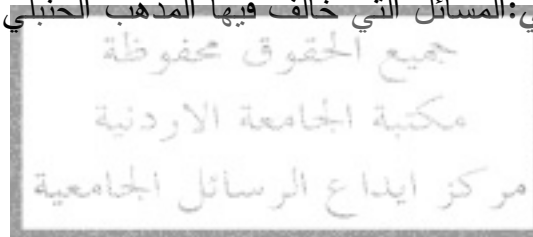 ي:المسائل التي خالف فيها المذهب الحنبلي
جميع الحقوق محفوظة
مكتبة الجامعة الاردنية
مركز ايداع الرسائل الجامعية